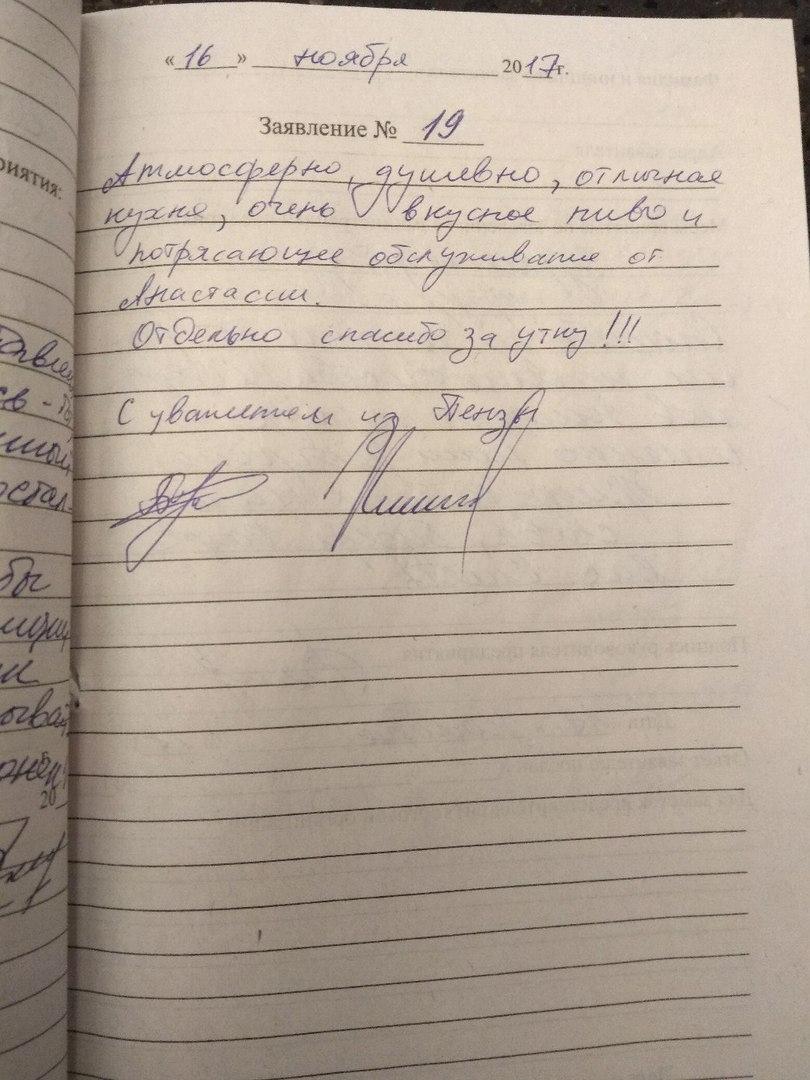 «16» ноября 2017г.
Заявление № 19
Атмосферно, душевно, отличная
кухня, очень вкусное пиво и
потрясающее обслуживание от
Анастасии.
Отдельно спасибо за утку!!!
С уважением из Пензы
риятия:
бы
20